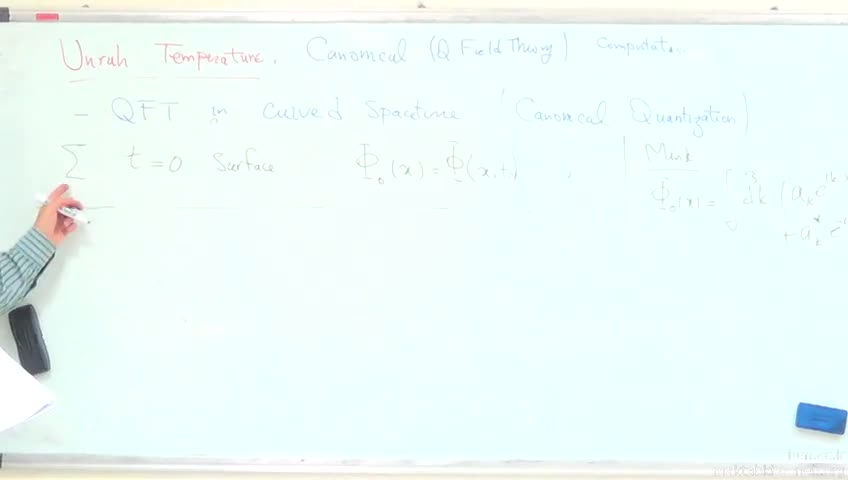 Unruh Temperature. Canonical (Q Field Theory) Computation
- QFT in curved Spacetime (Canonical Quantization)
Σ t = 0 Surface Φ₀(x) = Φ(x,t) ,
Mink
Φ₀(x) = ∫ d³k (a_k e^{ik
+ a_k^* e^{-i